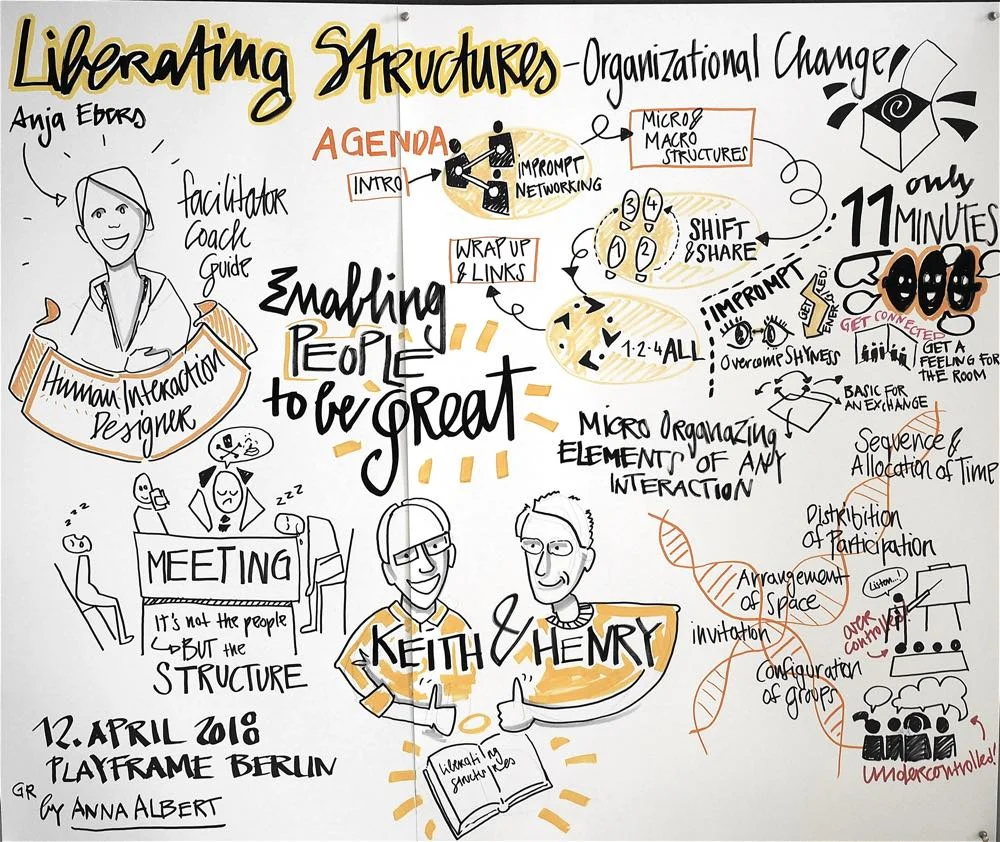 Liberating Structures - Organizational Change
Anja Ebers
facilitator
Coach
Guide
Human Interaction
Designer
AGENDA
INTRO
IMPROMPT
NETWORKING
MICRO &
MACRO
STRUCTURES
3 4
1 2
SHIFT
& SHARE
1·2·4 ALL
WRAP UP
& LINKS
Enabling
PEOPLE
to be great
only
11 MINUTES
IMPROMPT
GET
ENERGIZED!
Overcome SHYNESS
GET CONNECTED
GET A
FEELING FOR
THE ROOM
BASIC FOR
AN EXCHANGE
MICRO Organazing
ELEMENTS OF ANY
INTERACTION
Sequence &
Allocation of Time
Distribition
of Participation
Arrangement
of Space
invitation
Configuration
of groups
Listen...!
over-
controlled!
undercontrolled!
zzz
zzz
MEETING
It's not the people
BUT the
STRUCTURE
KEITH & HENRY
Liberating
structures
12. APRIL 2018
PLAYFRAME BERLIN
GR
by ANNA ALBERT